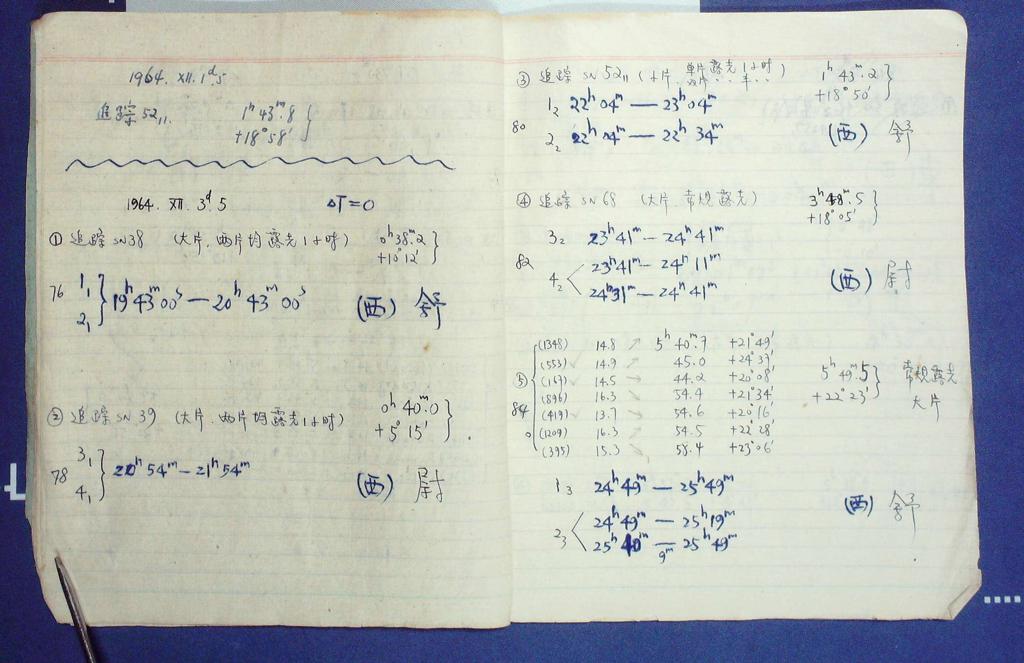 1964. XII. 1ᵈ.5
追踪 52₁₁. 1ʰ 43ᵐ.8
+18° 58'
1964. XII. 3ᵈ.5 ΔT=0
① 追踪 SN38 (大片, 两片均露光1小时) 0ʰ38ᵐ.2
+10°12'
76 1₁ 2₁ 19ʰ 43ᵐ 00ˢ — 20ʰ 43ᵐ 00ˢ (西) 舒
② 追踪 SN 39 (大片, 两片均露光1小时) 0ʰ 40ᵐ.0
+5° 15'
78 3₁ 4₁ 20ʰ 54ᵐ — 21ʰ 54ᵐ (西) 尉
③ 追踪 SN 52₁₁ (小片, 露光1小时) 1ʰ 43ᵐ.2
+18° 50'
80
1₂ 22ʰ 04ᵐ — 23ʰ 04ᵐ
2₂ 22ʰ 04ᵐ — 22ʰ 34ᵐ (西) 舒
④ 追踪 SN 68 (大片, 常规露光) 3ʰ 48ᵐ.5
+18° 05'
82
3₂ 23ʰ 41ᵐ — 24ʰ 41ᵐ
4₂ 23ʰ 41ᵐ — 24ʰ 11ᵐ (西) 尉
24ʰ 31ᵐ — 24ʰ 41ᵐ
⑤ 84
(1348) 14.8 ↗ 5ʰ 40ᵐ.7 +21° 49'
(553) 14.9 ↗ 45.0 +24° 37'
(169) 14.5 ↘ 44.2 +20° 08'
(896) 16.3 ↘ 54.4 +21° 34'
(419) 13.7 ↗ 54.6 +20° 16'
(1209) 16.3 → 54.5 +22° 28'
(395) 15.3 ↘ 58.4 +23° 06'
5ʰ 49ᵐ.5 常规露光
+22° 23' 大片
1₃ 24ʰ 49ᵐ — 25ʰ 49ᵐ (西) 舒
2₃ 24ʰ 49ᵐ — 25ʰ 19ᵐ
25ʰ 40ᵐ — 25ʰ 49ᵐ
9ᵐ